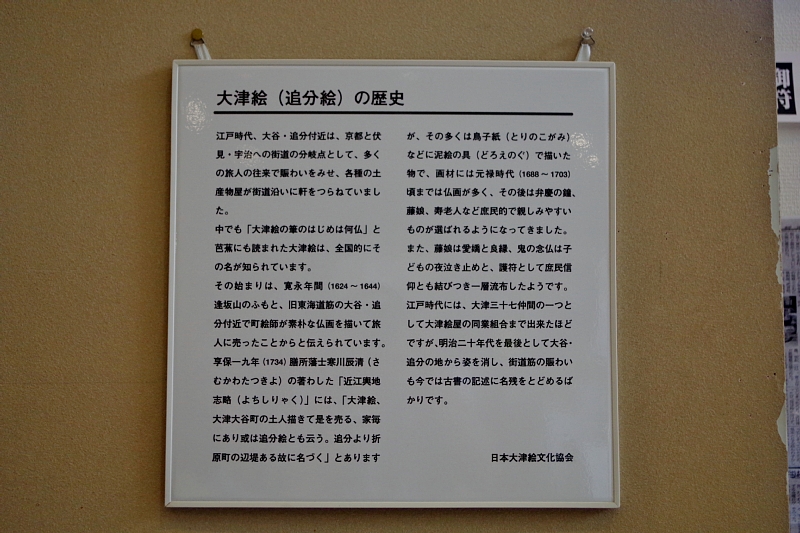 大津絵（追分絵）の歴史
江戸時代、大谷・追分付近は、京都と伏
見・宇治への街道の分岐点として、多く
の旅人の往来で賑わいをみせ、各種の土
産物屋が街道沿いに軒をつらねていまし
た。
中でも「大津絵の筆のはじめは何仏」と
芭蕉にも読まれた大津絵は、全国的にそ
の名が知られています。
その始まりは、寛永年間（1624～1644）
逢坂山のふもと、旧東海道筋の大谷・追
分付近で町絵師が素朴な仏画を描いて旅
人に売ったことからと伝えられています。
享保一九年（1734）膳所藩士寒川辰清（さ
むかわたつきよ）の著わした「近江輿地
志略（よちしりゃく）」には、「大津絵、
大津大谷町の土人描きて是を売る、家毎
にあり或は追分絵とも云う。追分より折
原町の辺堤ある故に名づく」とあります
が、その多くは鳥子紙（とりのこがみ）
などに泥絵の具（どろえのぐ）で描いた
物で、画材には元禄時代（1688～1703）
頃までは仏画が多く、その後は弁慶の鐘、
藤娘、寿老人など庶民的で親しみやすい
ものが選ばれるようになってきました。
また、藤娘は愛嬌と良縁、鬼の念仏は子
どもの夜泣き止めと、護符として庶民信
仰とも結びつき一層流布したようです。
江戸時代には、大津三十七仲間の一つと
して大津絵屋の同業組合まで出来たほど
ですが、明治二十年代を最後として大谷・
追分の地から姿を消し、街道筋の賑わい
も今では古書の記述に名残をとどめるば
かりです。
日本大津絵文化協会
御符